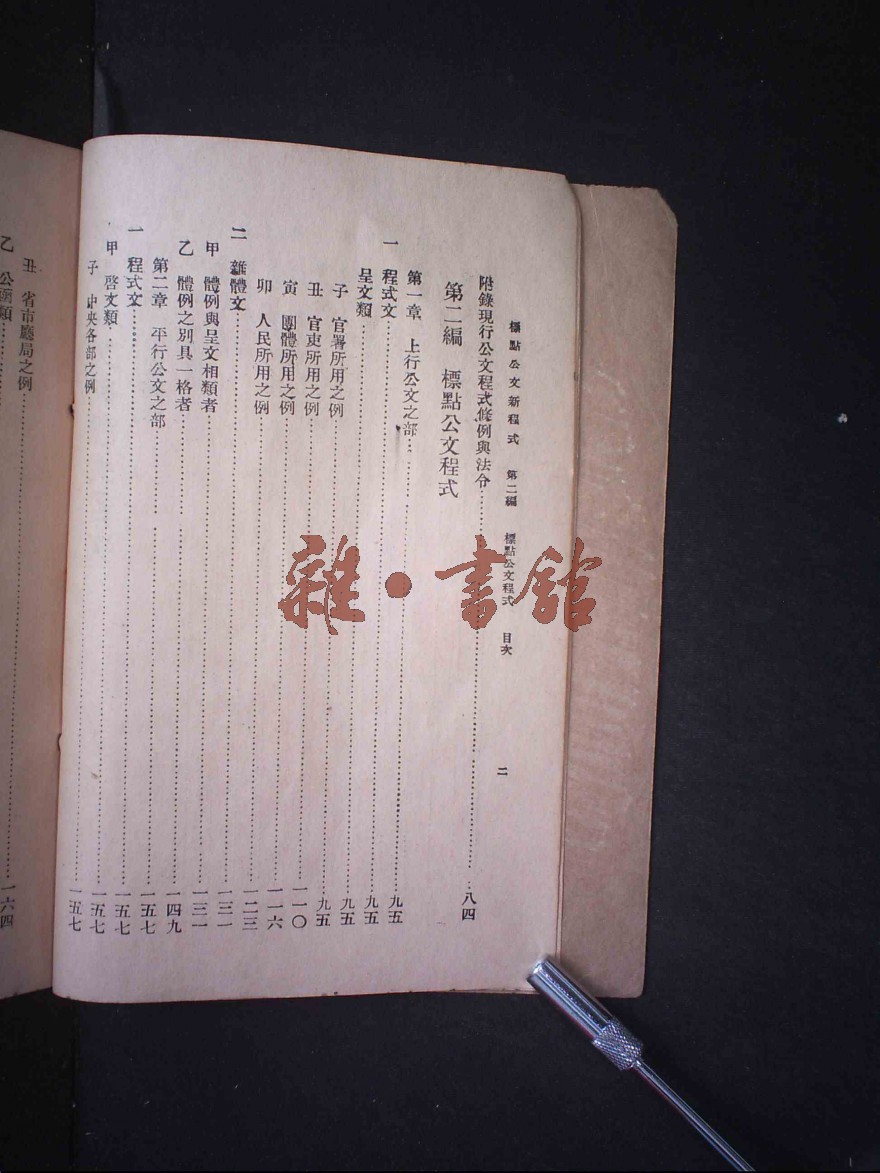 標點公文新程式 第二編 標點公文程式 目次 二
附錄現行公文程式條例與法令……八四
第二編 標點公文程式
第一章 上行公文之部……九五
一 程式文……九五
呈文類……九五
子 官署所用之例……九五
丑 官吏所用之例……一一〇
寅 團體所用之例……一一六
卯 人民所用之例……一二三
二 雜體文……一三一
甲 體例與呈文相類者……一三一
乙 體例之別具一格者……一四九
第二章 平行公文之部……一五七
一 程式文……一五七
甲 啓文類……一五七
子 中央各部之例……一五七
丑 省市廳局之例……一六四
乙 公函類……
雜·書館